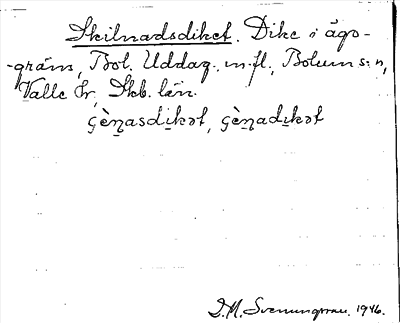 Skilnadsdiket. Dike i ägo-
-gräns, Bol. Uddag. m.fl., Bolum s:n,
Valle hr, Skb. län.
ɕèṉasdi̱kət, ɕèṉadi̱kət
D.M. Svenungsson. 1946.